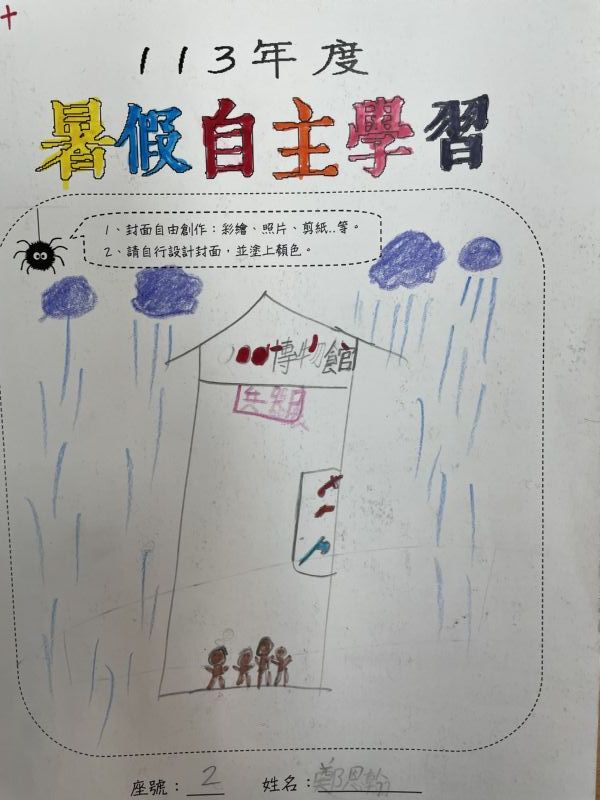 113年度
暑假自主學習
1、封面自由創作：彩繪、照片、剪紙..等。
2、請自行設計封面，並塗上顏色。
博物館
座號：2 姓名：鄭恩翰